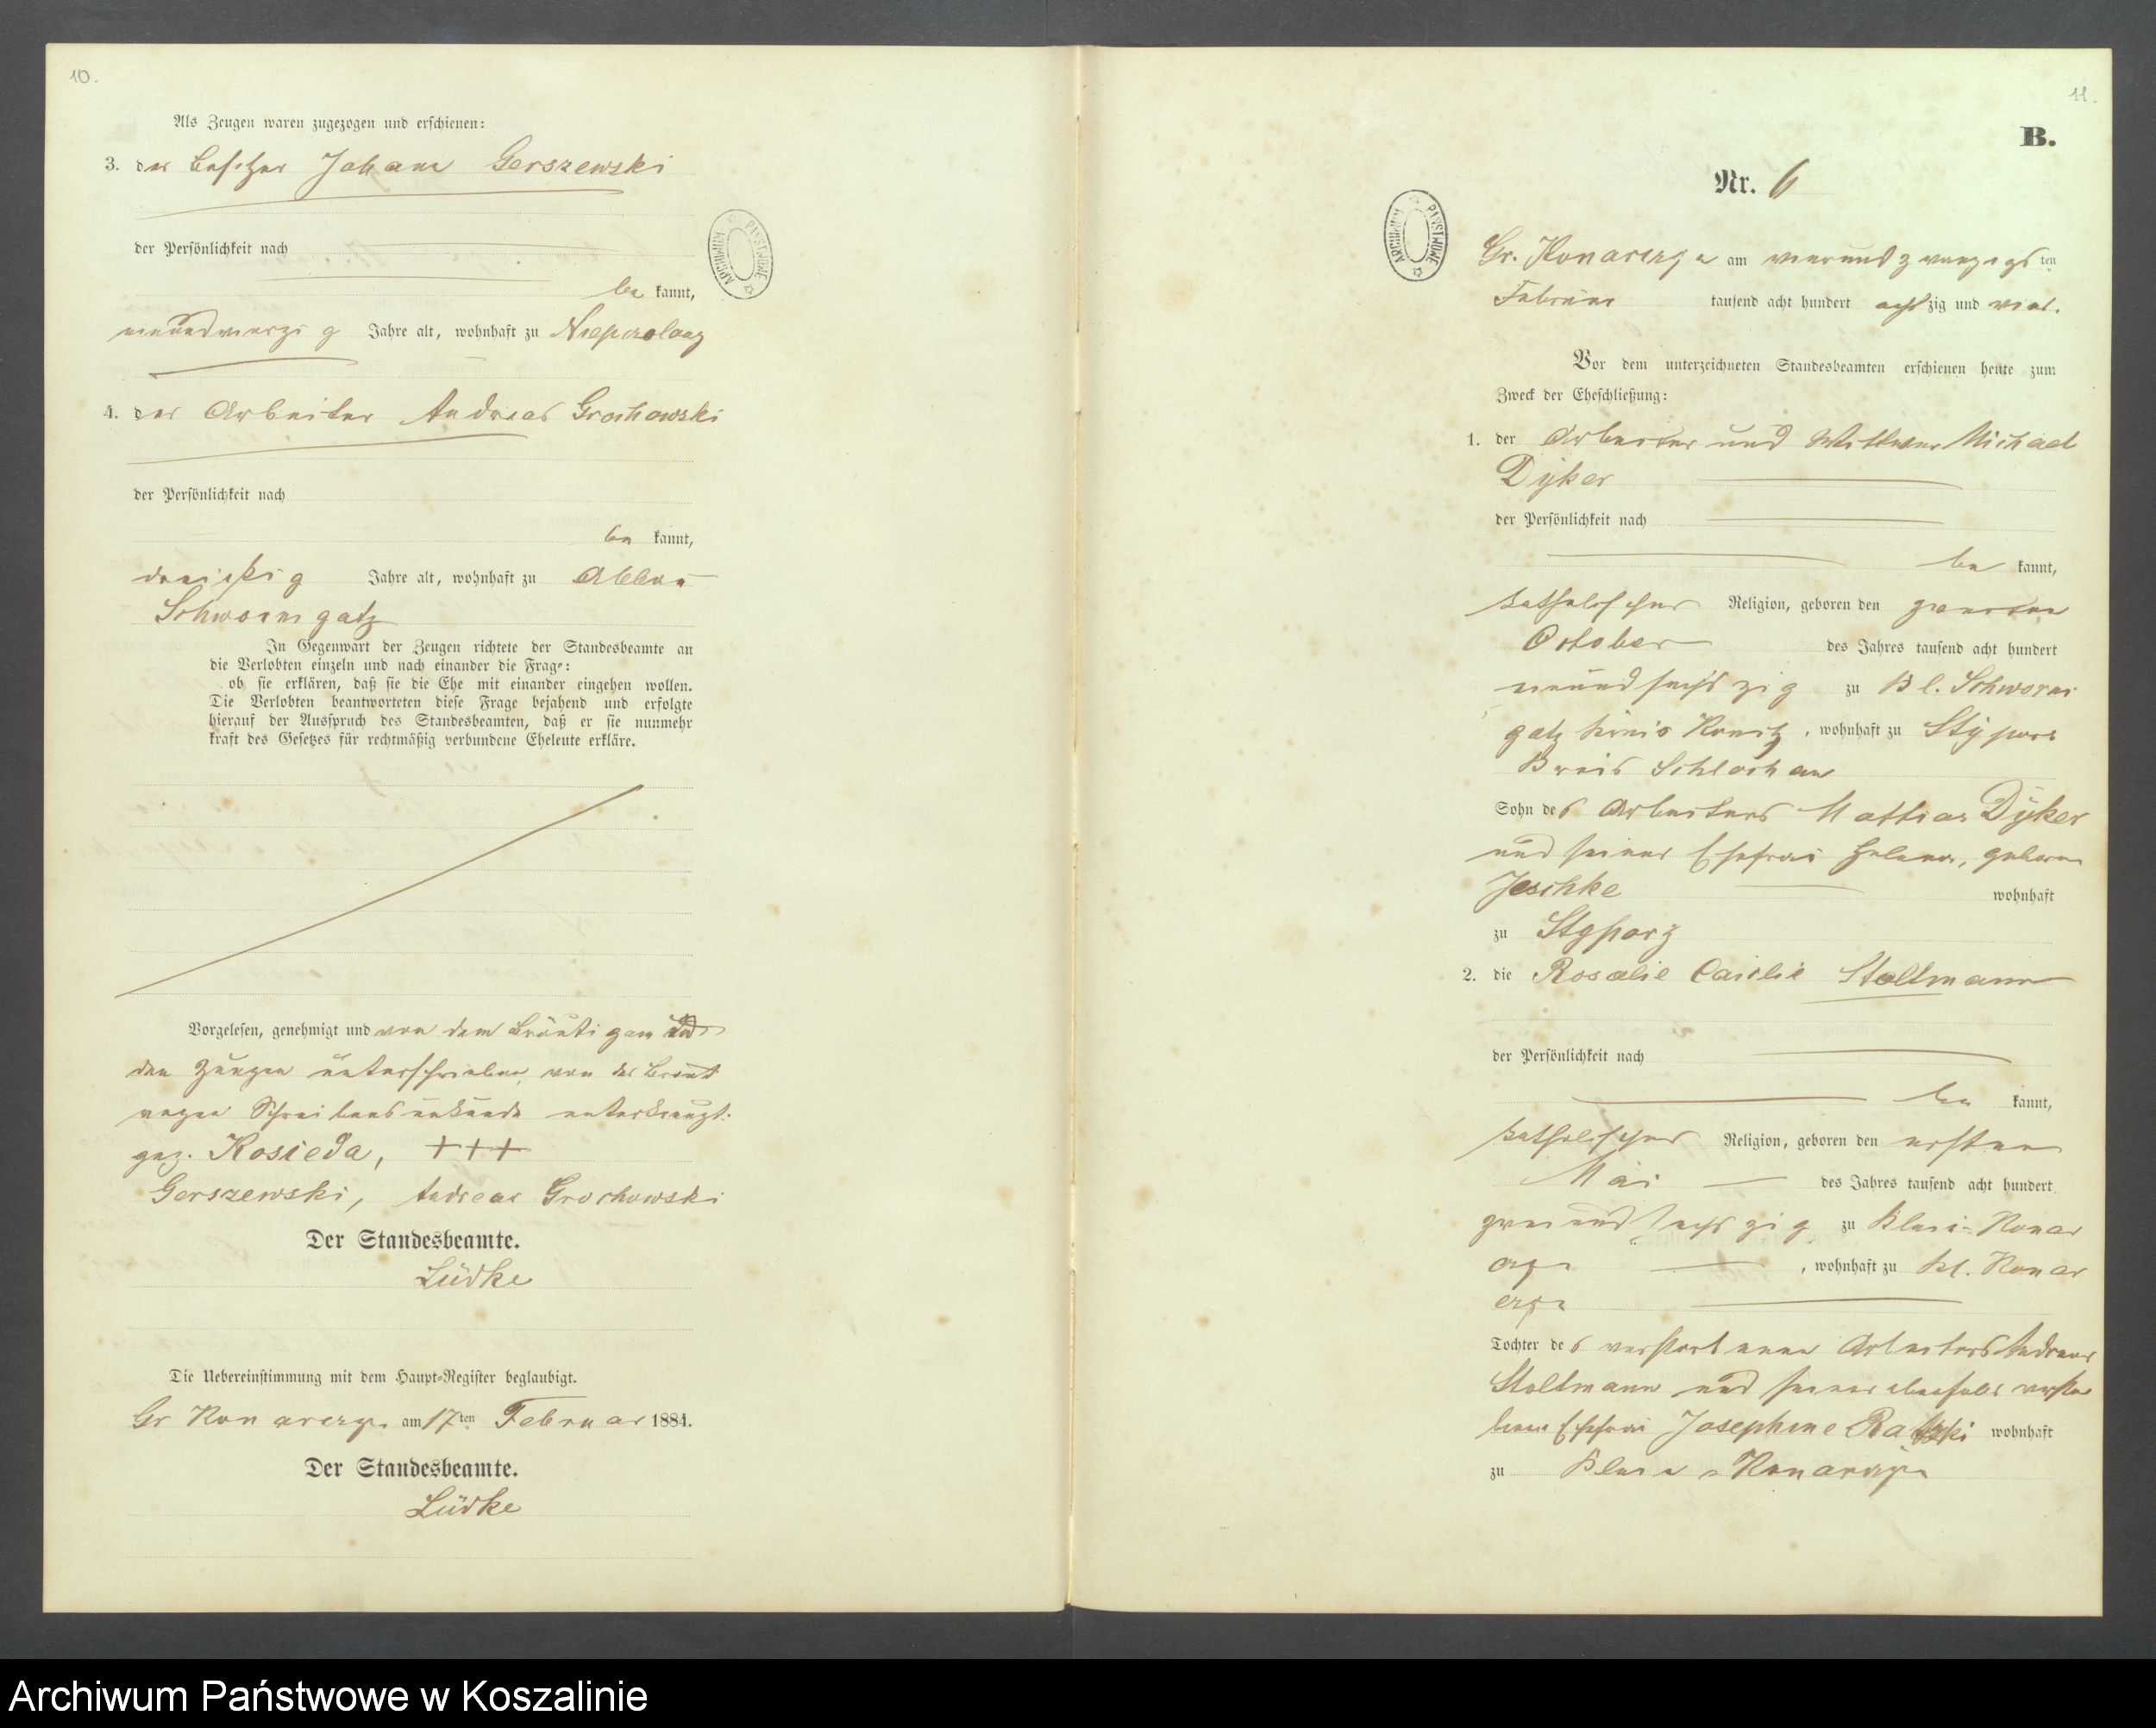 10.
Als Zeugen waren zugezogen und erschienen:
3. der Besitzer Johann Gerszewski
der Persönlichkeit nach
be kannt,
neunundvierzig Jahre alt, wohnhaft zu
4. der Arbeiter Andreas Grochowski
der Persönlichkeit nach
be kannt,
dreißig Jahre alt, wohnhaft zu Abbau
Schwornigatz
In Gegenwart der Zeugen richtete der Standesbeamte an
die Verlobten einzeln und nach einander die Frage:
ob sie erklären, daß sie die Ehe mit einander eingehen wollen.
Die Verlobten beantworteten diese Frage bejahend und erfolgte
hierauf der Ausspruch des Standesbeamten, daß er sie nunmehr
kraft des Gesetzes für rechtmäßig verbundene Eheleute erkläre.
Vorgelesen, genehmigt und von dem Bräutigam und
den Zeugen unterschrieben, von der Braut
wegen Schreibensunkunde unterkreuzt.
gez. Kosieda, +++
Gerszewski, Andreas Grochowski
Der Standesbeamte.
Lüdke
Die Uebereinstimmung mit dem Haupt-Register beglaubigt.
Gr Konarczyn am 17ten Februar 1884.
Der Standesbeamte.
Lüdke
11.
B.
Nr. 6
ARCHIWUM PAŃSTWOWE
ARCHIWUM PAŃSTWOWE
Gr. Konarczyn am vierundzwanzigsten
Februar tausend acht hundert achtzig und vier.
Vor dem unterzeichneten Standesbeamten erschienen heute zum
Zweck der Eheschließung:
1. der Arbeiter und Wittwer Michael
Dyker
der Persönlichkeit nach
be kannt,
katholischer Religion, geboren den zweiten
October des Jahres tausend acht hundert
neunundsechszig zu Kl. Schworni
gatz Kreis Konitz, wohnhaft zu
Kreis Schlochau
Sohn des Arbeiters Mattias Dyker
und seiner Ehefrau Helena, geborne
Jeschke wohnhaft
zu
2. die Rosalie Cäcilie Stoltmann
der Persönlichkeit nach
be kannt,
katholischer Religion, geboren den ersten
Mai des Jahres tausend acht hundert
zweiundsechszig zu Klein-Konar
czyn, wohnhaft zu Kl. Konar
czyn
Tochter des verstorbenen Arbeiters Andreas
Stoltmann und seiner ebenfalls verstor
benen Ehefrau Josephine wohnhaft
zu Klein-Konarczyn
Archiwum Państwowe w Koszalinie